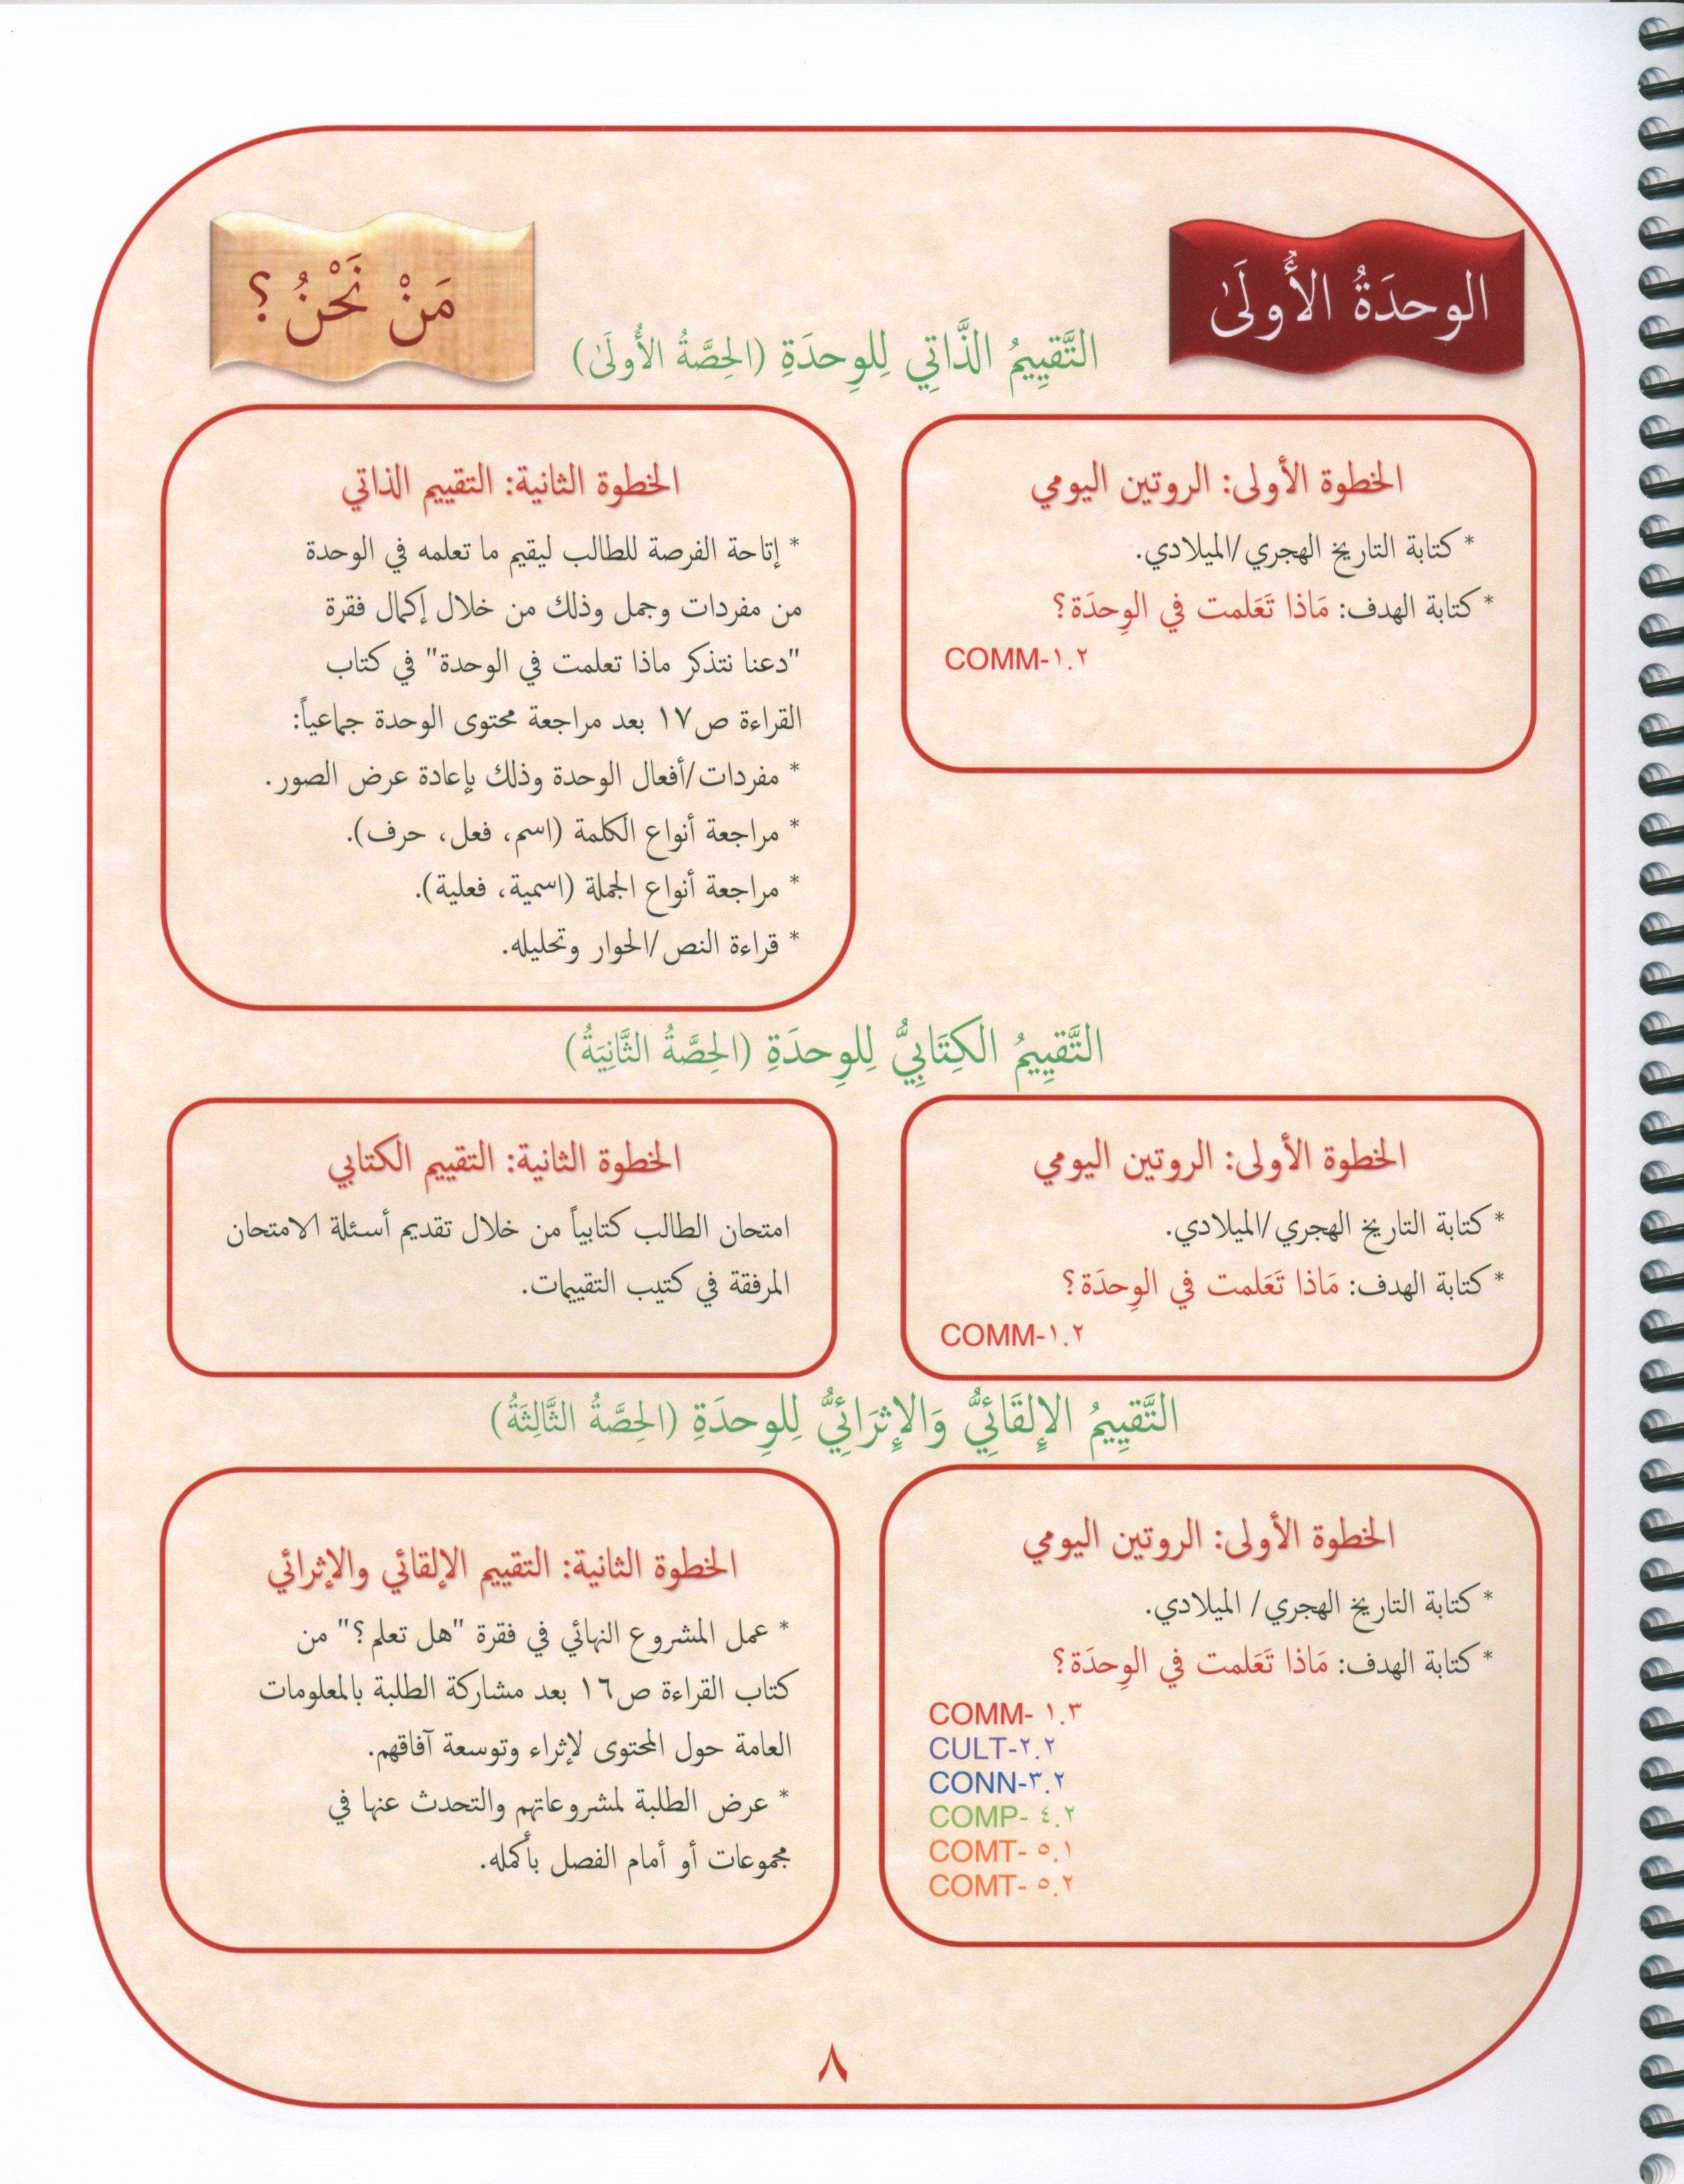 الوحدَةُ الأُولَىٰ
مَنْ نَحْنُ؟
التَّقيِيمُ الذَّاتِي لِلوِحدَةِ (الحِصَّةُ الأُولَىٰ)
الخطوة الأولى: الروتين اليومي
* كتابة التاريخ الهجري/الميلادي.
* كتابة الهدف: مَاذا تَعَلمت في الوِحدَة؟
COMM-١.٢
الخطوة الثانية: التقييم الذاتي
* إتاحة الفرصة للطالب ليقيم ما تعلمه في الوحدة
من مفردات وجمل وذلك من خلال إكمال فقرة
"دعنا نتذكر ماذا تعلمت في الوحدة" في كتاب
القراءة ص١٧ بعد مراجعة محتوى الوحدة جماعياً:
* مفردات/أفعال الوحدة وذلك بإعادة عرض الصور.
* مراجعة أنواع الكلمة (اسم، فعل، حرف).
* مراجعة أنواع الجملة (اسمية، فعلية).
* قراءة النص/الحوار وتحليله.
التَّقيِيمُ الكِتَابِيُّ لِلوِحدَةِ (الحِصَّةُ الثَّانِيَةُ)
الخطوة الأولى: الروتين اليومي
* كتابة التاريخ الهجري/الميلادي.
* كتابة الهدف: مَاذا تَعَلمت في الوِحدَة؟
COMM-١.٢
الخطوة الثانية: التقييم الكتابي
امتحان الطالب كتابياً من خلال تقديم أسئلة الامتحان
المرفقة في كتيب التقييمات.
التَّقيِيمُ الإِلقَائِيُّ وَالإِثرَائِيُّ لِلوِحدَةِ (الحِصَّةُ الثَّالِثَةُ)
الخطوة الأولى: الروتين اليومي
* كتابة التاريخ الهجري/ الميلادي.
* كتابة الهدف: مَاذا تَعَلمت في الوِحدَة؟
COMM- ١.٣
CULT-٢.٢
CONN-٣.٢
COMP- ٤.٢
COMT- ٥.١
COMT- ٥.٢
الخطوة الثانية: التقييم الإلقائي والإثرائي
* عمل المشروع النهائي في فقرة "هل تعلم؟" من
كتاب القراءة ص١٦ بعد مشاركة الطلبة بالمعلومات
العامة حول المحتوى لإثراء وتوسعة آفاقهم.
* عرض الطلبة لمشروعاتهم والتحدث عنها في
مجموعات أو أمام الفصل بأكمله.
٨